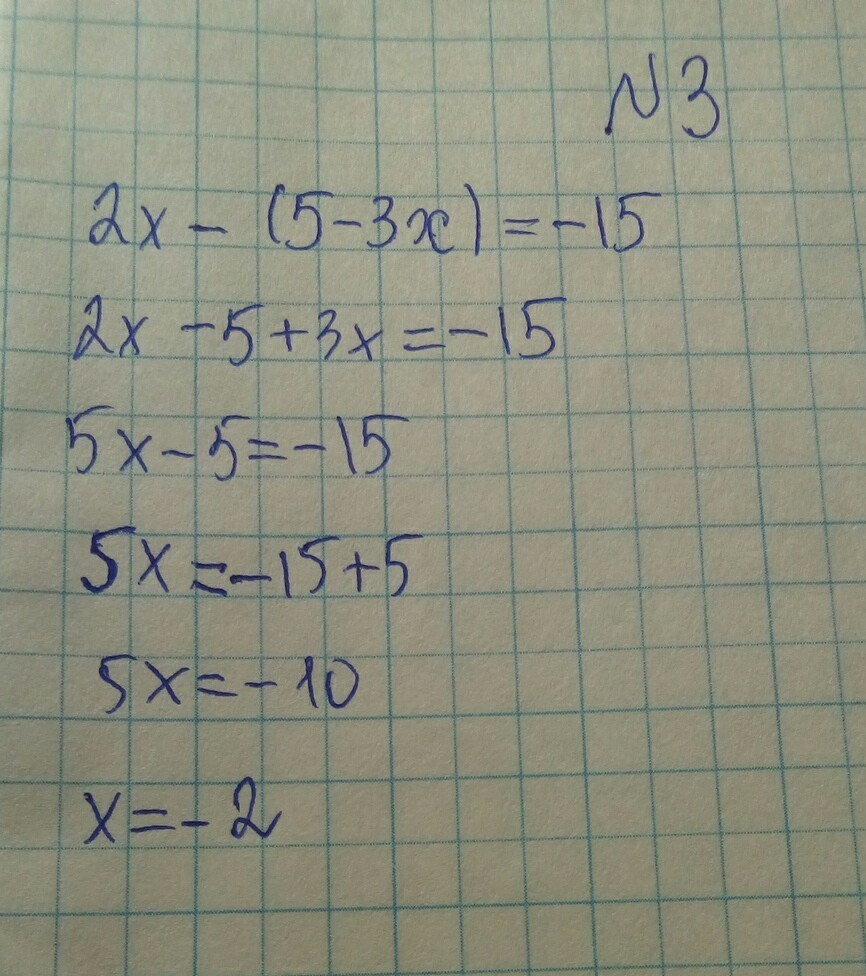 N3
2x - (5-3x) = -15
2x -5+3x =-15
5x-5=-15
5x =-15+5
5x=-10
x=-2